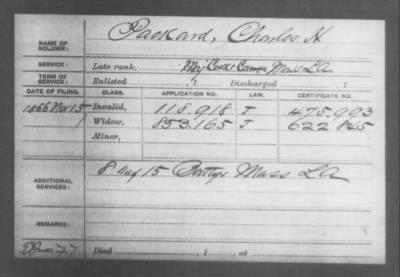 NAME OF SOLDIER: Packard, Charles H
SERVICE: Late rank, Maj Mass L A
TERM OF SERVICE: Enlisted , 1 Discharged , 1
DATE OF FILING. CLASS. APPLICATION NO. LAW. CERTIFICATE NO.
1866 Nov 15 Invalid, 118.918 T 475.993
Widow, 853.165 J 622.845
Minor,
ADDITIONAL SERVICES: 8 & 15 Batty's Mass L A
REMARKS:
Died , 1 , at